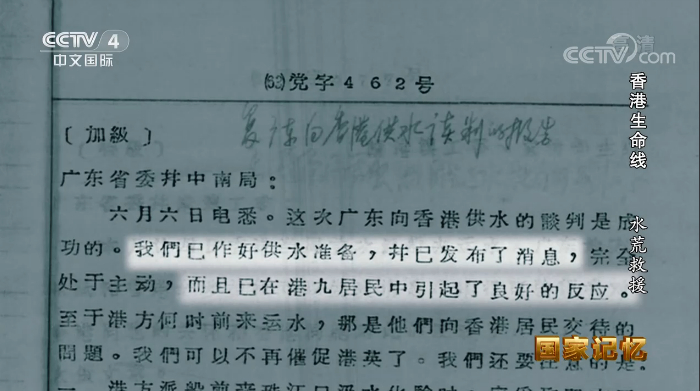 CCTV 4
中文国际
CCTV.com
高清
香港生命线 水荒救援
党字462号
〔加級〕
复谈向香港供水谈判的报告
广东省委并中南局：
六月六日电悉。这次广东向香港供水的談判是成
功的。我們已作好供水准备，并已发布了消息，完全
处于主动，而且已在港九居民中引起了良好的反应。
至于港方何时前来运水，那是他們向香港居民交待的
問題。我們可以不再催促港英了。我們还要注意的是。
国家记忆